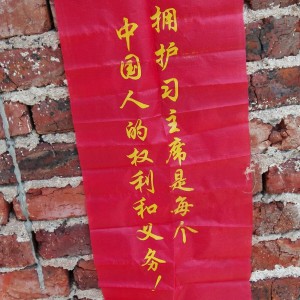 拥护习主席是每个
中国人的权利和义务！